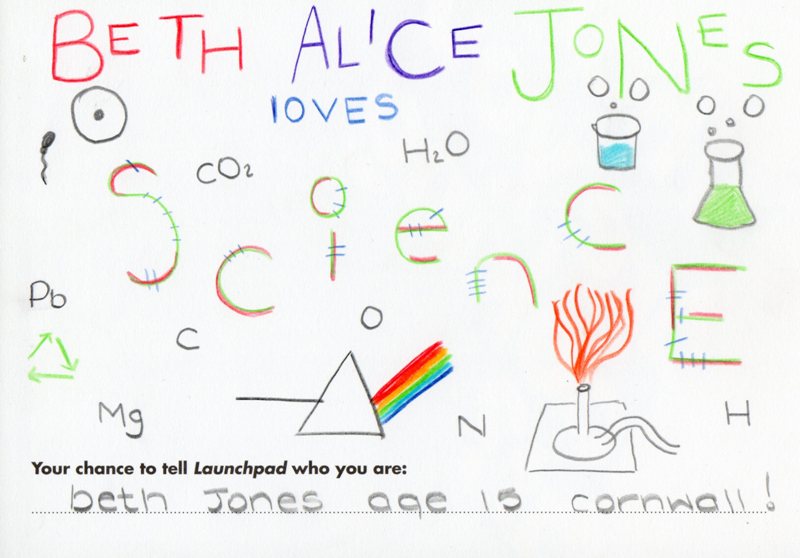 BETH ALICE JONES
lOVES
CO2
H2O
SciencE
Pb
C
O
Mg
N
H
Your chance to tell Launchpad who you are:
beth Jones age 15 cornwall!